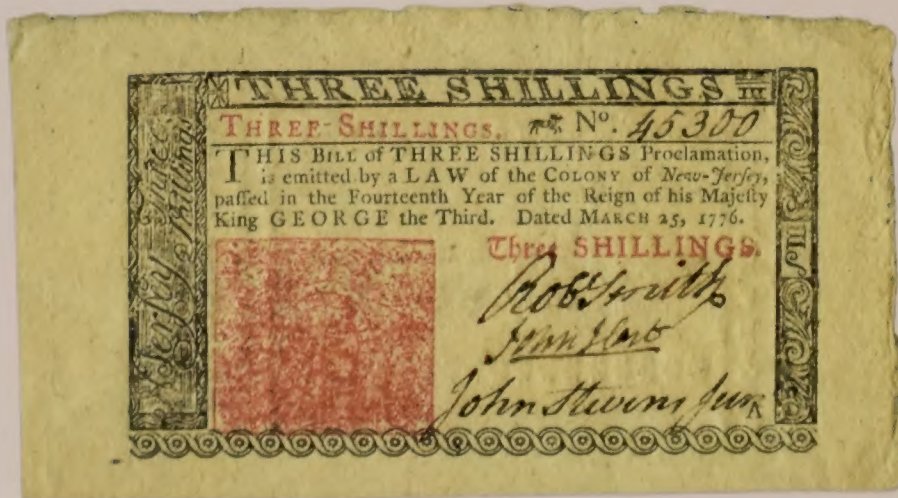 THREE SHILLINGS III
THREE-SHILLINGS. Nº. 45300
THIS BILL of THREE SHILLINGS Proclamation,
is emitted by a LAW of the COLONY of New-Jerſey,
paſſed in the Fourteenth Year of the Reign of his Majeſty
King GEORGE the Third. Dated MARCH 25, 1776.
Three SHILLINGS.
Robt Smith
John Hart
John Stevens Junr
Jerſey Three
Shillings
III